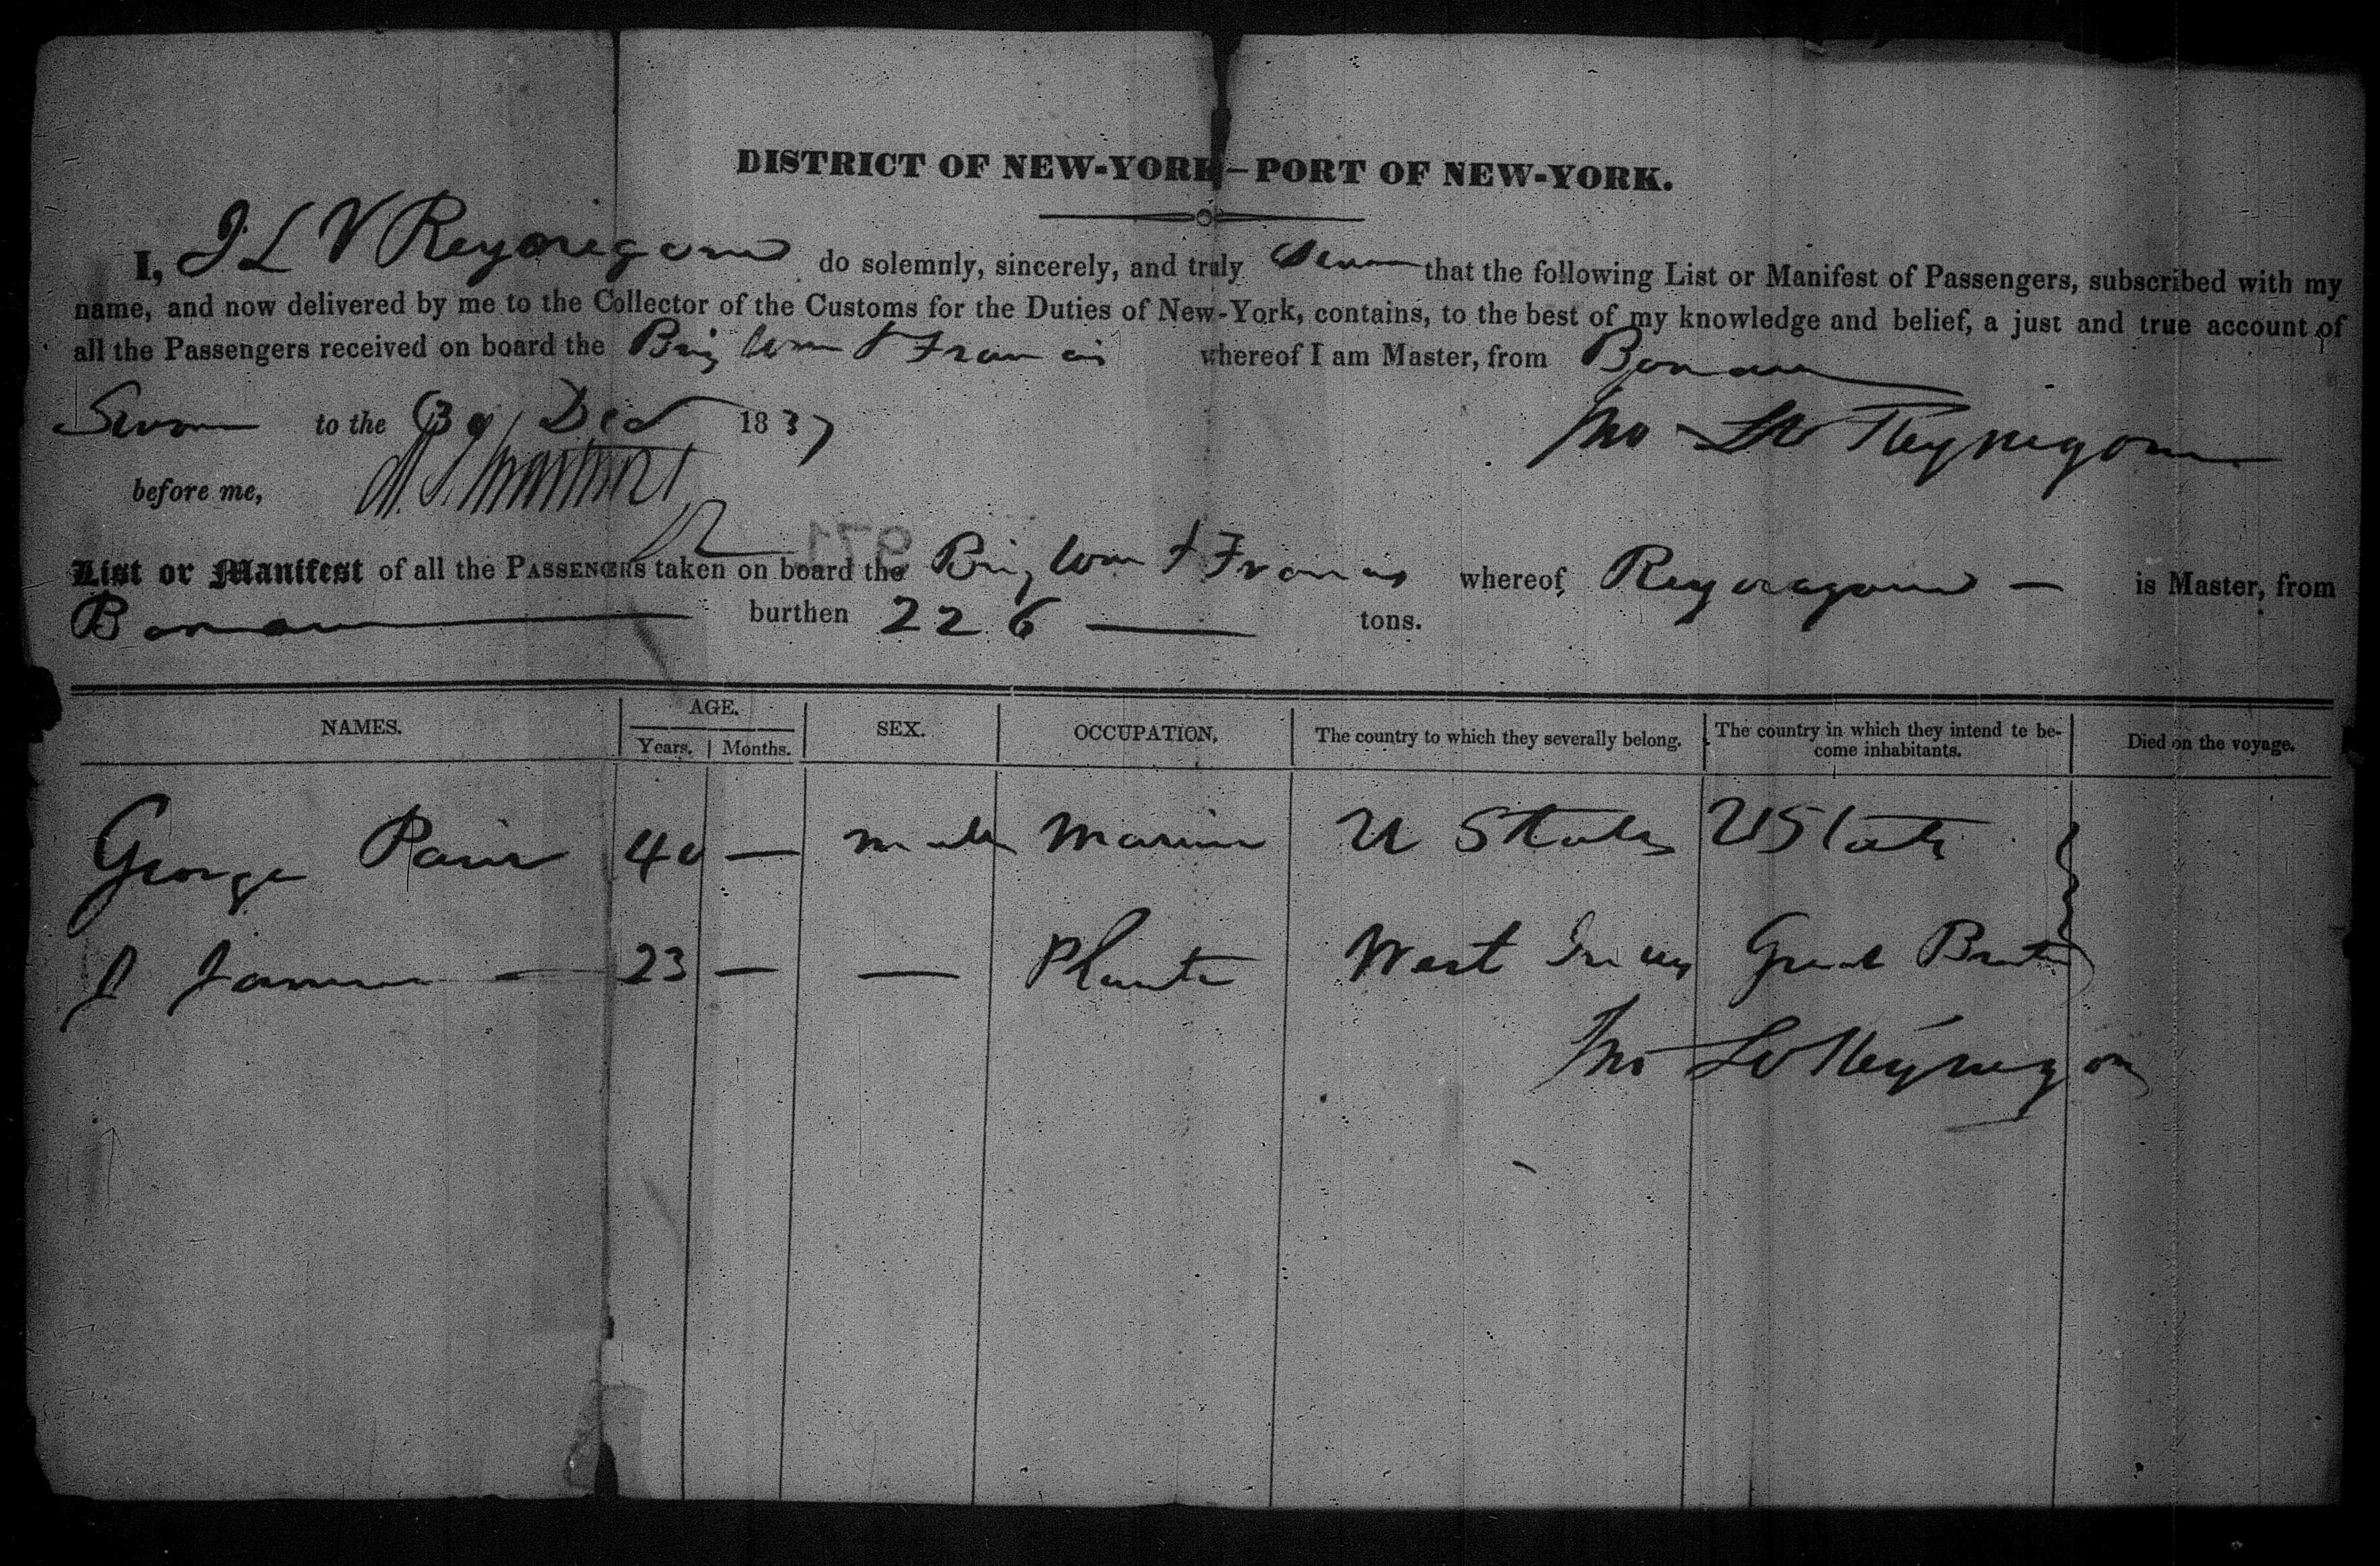 DISTRICT OF NEW-YORK—PORT OF NEW-YORK.
I, J L V do solemnly, sincerely, and truly Swear that the following List or Manifest of Passengers, subscribed with my
name, and now delivered by me to the Collector of the Customs for the Duties of New-York, contains, to the best of my knowledge and belief, a just and true account of
all the Passengers received on board the Brig Wm & Francis whereof I am Master, from
Sworn to the 30 Dec 1837
Jno
before me,
971
List or Manifest of all the PASSENGERS taken on board the Brig Wm & Francis whereof is Master, from
burthen 226 tons.
NAMES. AGE. SEX. OCCUPATION, The country to which they severally belong. The country in which they intend to be-
Years. Months. come inhabitants. Died on the voyage.
George 40 — male Marine U States U States
J 23 — — Planter West Indies Great Britn
Jno